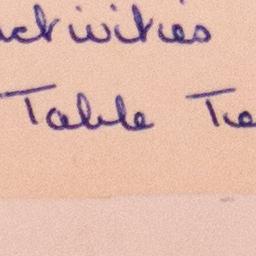 activities
Table Te